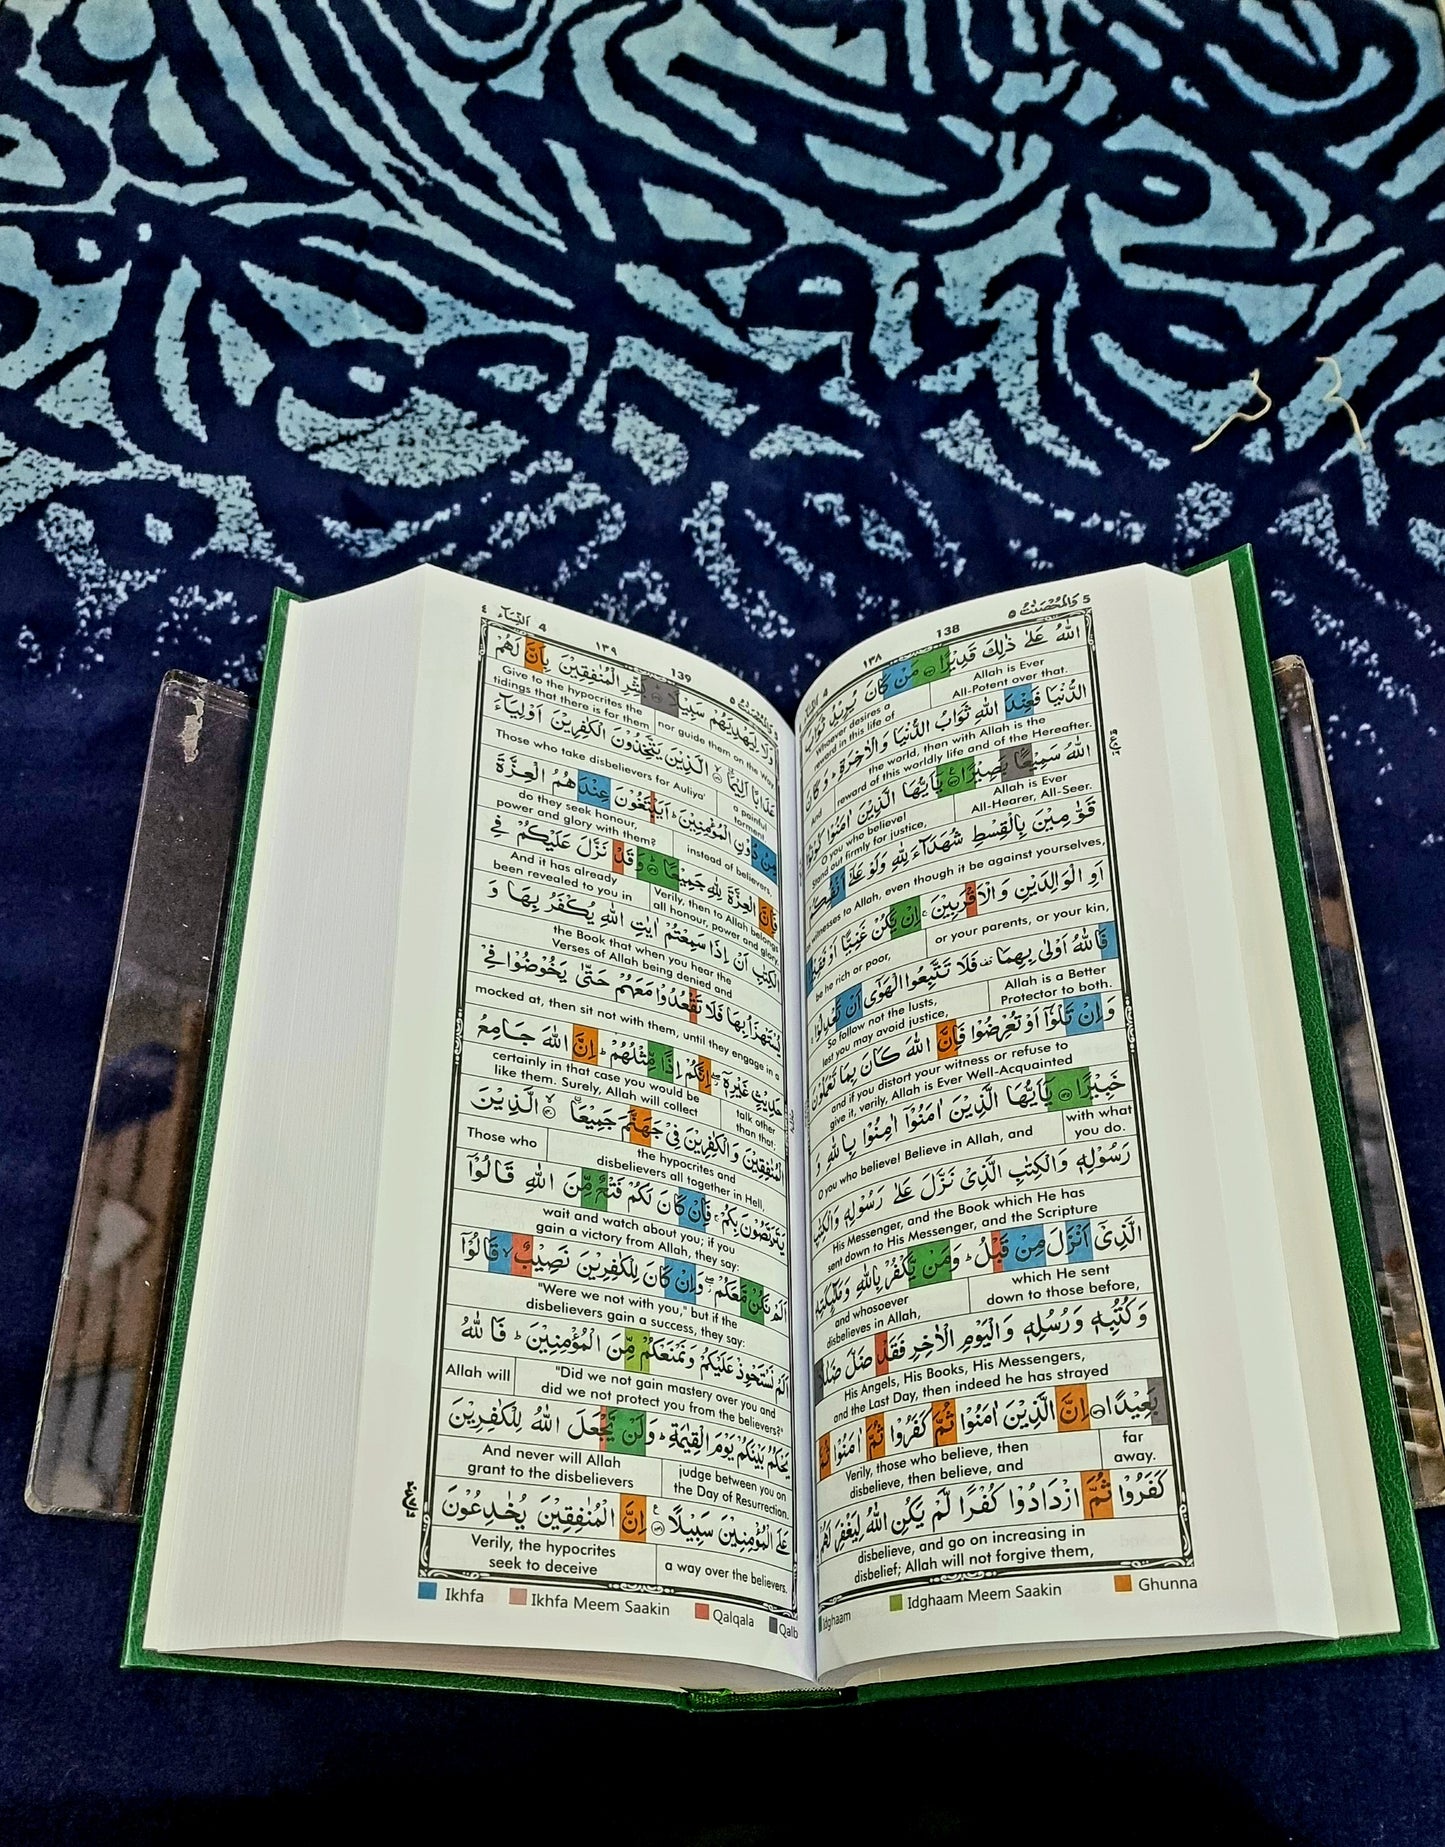 5 وَالْمُحْصَنٰتُ ٥
138 ١٣٨
اللّٰهُ عَلٰى ذٰلِكَ قَدِيْرًا مَنْ كَانَ يُرِيْدُ ثَوَابَ
Allah is Ever All-Potent over that.
Whoever desires a reward in this life of
الدُّنْيَا فَعِنْدَ اللّٰهِ ثَوَابُ الدُّنْيَا وَالْاٰخِرَةِ ؕ وَكَانَ
the world, then with Allah is the
reward of this worldly life and of the Hereafter.
And
اللّٰهُ سَمِيْعًۢا بَصِيْرًا يٰۤاَيُّهَا الَّذِيْنَ اٰمَنُوْا كُوْنُوْا
Allah is Ever All-Hearer, All-Seer.
O you who believe!
Stand out firmly for justice,
قَوّٰمِيْنَ بِالْقِسْطِ شُهَدَآءَ لِلّٰهِ وَلَوْ عَلٰٓى اَنْفُسِكُمْ
witnesses to Allah, even though it be against yourselves,
اَوِ الْوَالِدَيْنِ وَالْاَقْرَبِيْنَ ۚ اِنْ يَّكُنْ غَنِيًّا اَوْ فَقِيْرًا
or your parents, or your kin,
be he rich or poor,
فَاللّٰهُ اَوْلٰى بِهِمَا فَلَا تَتَّبِعُوا الْهَوٰٓى اَنْ تَعْدِلُوْا
Allah is a Better Protector to both.
So follow not the lusts, lest you may avoid justice,
وَاِنْ تَلْوٗۤا اَوْ تُعْرِضُوْا فَاِنَّ اللّٰهَ كَانَ بِمَا تَعْمَلُوْنَ
and if you distort your witness or refuse to
give it, verily, Allah is Ever Well-Acquainted
خَبِيْرًا يٰۤاَيُّهَا الَّذِيْنَ اٰمَنُوْۤا اٰمِنُوْا بِاللّٰهِ وَ
with what you do.
O you who believe! Believe in Allah, and
رَسُوْلِهٖ وَالْكِتٰبِ الَّذِيْ نَزَّلَ عَلٰى رَسُوْلِهٖ وَالْكِتٰبِ
His Messenger, and the Book which He has
sent down to His Messenger, and the Scripture
الَّذِيْۤ اَنْزَلَ مِنْ قَبْلُ ؕ وَمَنْ يَّكْفُرْ بِاللّٰهِ وَمَلٰٓئِكَتِهٖ
which He sent down to those before,
and whosoever disbelieves in Allah,
وَكُتُبِهٖ وَرُسُلِهٖ وَالْيَوْمِ الْاٰخِرِ فَقَدْ ضَلَّ ضَلٰلًاۢ
His Angels, His Books, His Messengers,
and the Last Day, then indeed he has strayed
بَعِيْدًا اِنَّ الَّذِيْنَ اٰمَنُوْا ثُمَّ كَفَرُوْا ثُمَّ اٰمَنُوْا ثُمَّ
far away.
Verily, those who believe, then
disbelieve, then believe, and
كَفَرُوْا ثُمَّ ازْدَادُوْا كُفْرًا لَّمْ يَكُنِ اللّٰهُ لِيَغْفِرَ لَهُمْ
disbelieve, and go on increasing in
disbelief; Allah will not forgive them,
Idghaam Idghaam Meem Saakin Ghunna
٤ اَلنِّسَآء 4
١٣٩ 139
وَلَا لِيَهْدِيَهُمْ سَبِيْلًاۢ بَشِّرِ الْمُنٰفِقِيْنَ بِاَنَّ لَهُمْ
nor guide them on the Way
Give to the hypocrites the
tidings that there is for them
عَذَابًا اَلِيْمًا الَّذِيْنَ يَتَّخِذُوْنَ الْكٰفِرِيْنَ اَوْلِيَآءَ
a painful torment
Those who take disbelievers for Auliya'
مِنْ دُوْنِ الْمُؤْمِنِيْنَ ؕ اَيَبْتَغُوْنَ عِنْدَهُمُ الْعِزَّةَ
instead of believers,
do they seek honour, power and glory with them?
فَاِنَّ الْعِزَّةَ لِلّٰهِ جَمِيْعًا وَقَدْ نَزَّلَ عَلَيْكُمْ فِي
Verily, then to Allah belongs all honour, power and glory.
And it has already been revealed to you in
الْكِتٰبِ اَنْ اِذَا سَمِعْتُمْ اٰيٰتِ اللّٰهِ يُكْفَرُ بِهَا وَ
the Book that when you hear the
Verses of Allah being denied and
يُسْتَهْزَاُ بِهَا فَلَا تَقْعُدُوْا مَعَهُمْ حَتّٰى يَخُوْضُوْا فِيْ
mocked at, then sit not with them, until they engage in a
حَدِيْثٍ غَيْرِهٖۤ اِنَّكُمْ اِذًا مِّثْلُهُمْ ؕ اِنَّ اللّٰهَ جَامِعُ
talk other than that:
certainly in that case you would be
like them. Surely, Allah will collect
الْمُنٰفِقِيْنَ وَالْكٰفِرِيْنَ فِيْ جَهَنَّمَ جَمِيْعًا الَّذِيْنَ
the hypocrites and disbelievers all together in Hell,
Those who
يَتَرَبَّصُوْنَ بِكُمْ ۚ فَاِنْ كَانَ لَكُمْ فَتْحٌ مِّنَ اللّٰهِ قَالُوْۤا
wait and watch about you; if you
gain a victory from Allah, they say:
اَلَمْ نَكُنْ مَّعَكُمْ وَاِنْ كَانَ لِلْكٰفِرِيْنَ نَصِيْبٌ قَالُوْۤا
"Were we not with you," but if the
disbelievers gain a success, they say:
اَلَمْ نَسْتَحْوِذْ عَلَيْكُمْ وَنَمْنَعْكُمْ مِّنَ الْمُؤْمِنِيْنَ ؕ فَاللّٰهُ
"Did we not gain mastery over you and
did we not protect you from the believers?"
Allah will
يَحْكُمُ بَيْنَكُمْ يَوْمَ الْقِيٰمَةِ ؕ وَلَنْ يَّجْعَلَ اللّٰهُ لِلْكٰفِرِيْنَ
judge between you on the Day of Resurrection.
And never will Allah grant to the disbelievers
عَلَى الْمُؤْمِنِيْنَ سَبِيْلًا اِنَّ الْمُنٰفِقِيْنَ يُخٰدِعُوْنَ
a way over the believers.
Verily, the hypocrites seek to deceive
Ikhfa Ikhfa Meem Saakin Qalqala Qalb